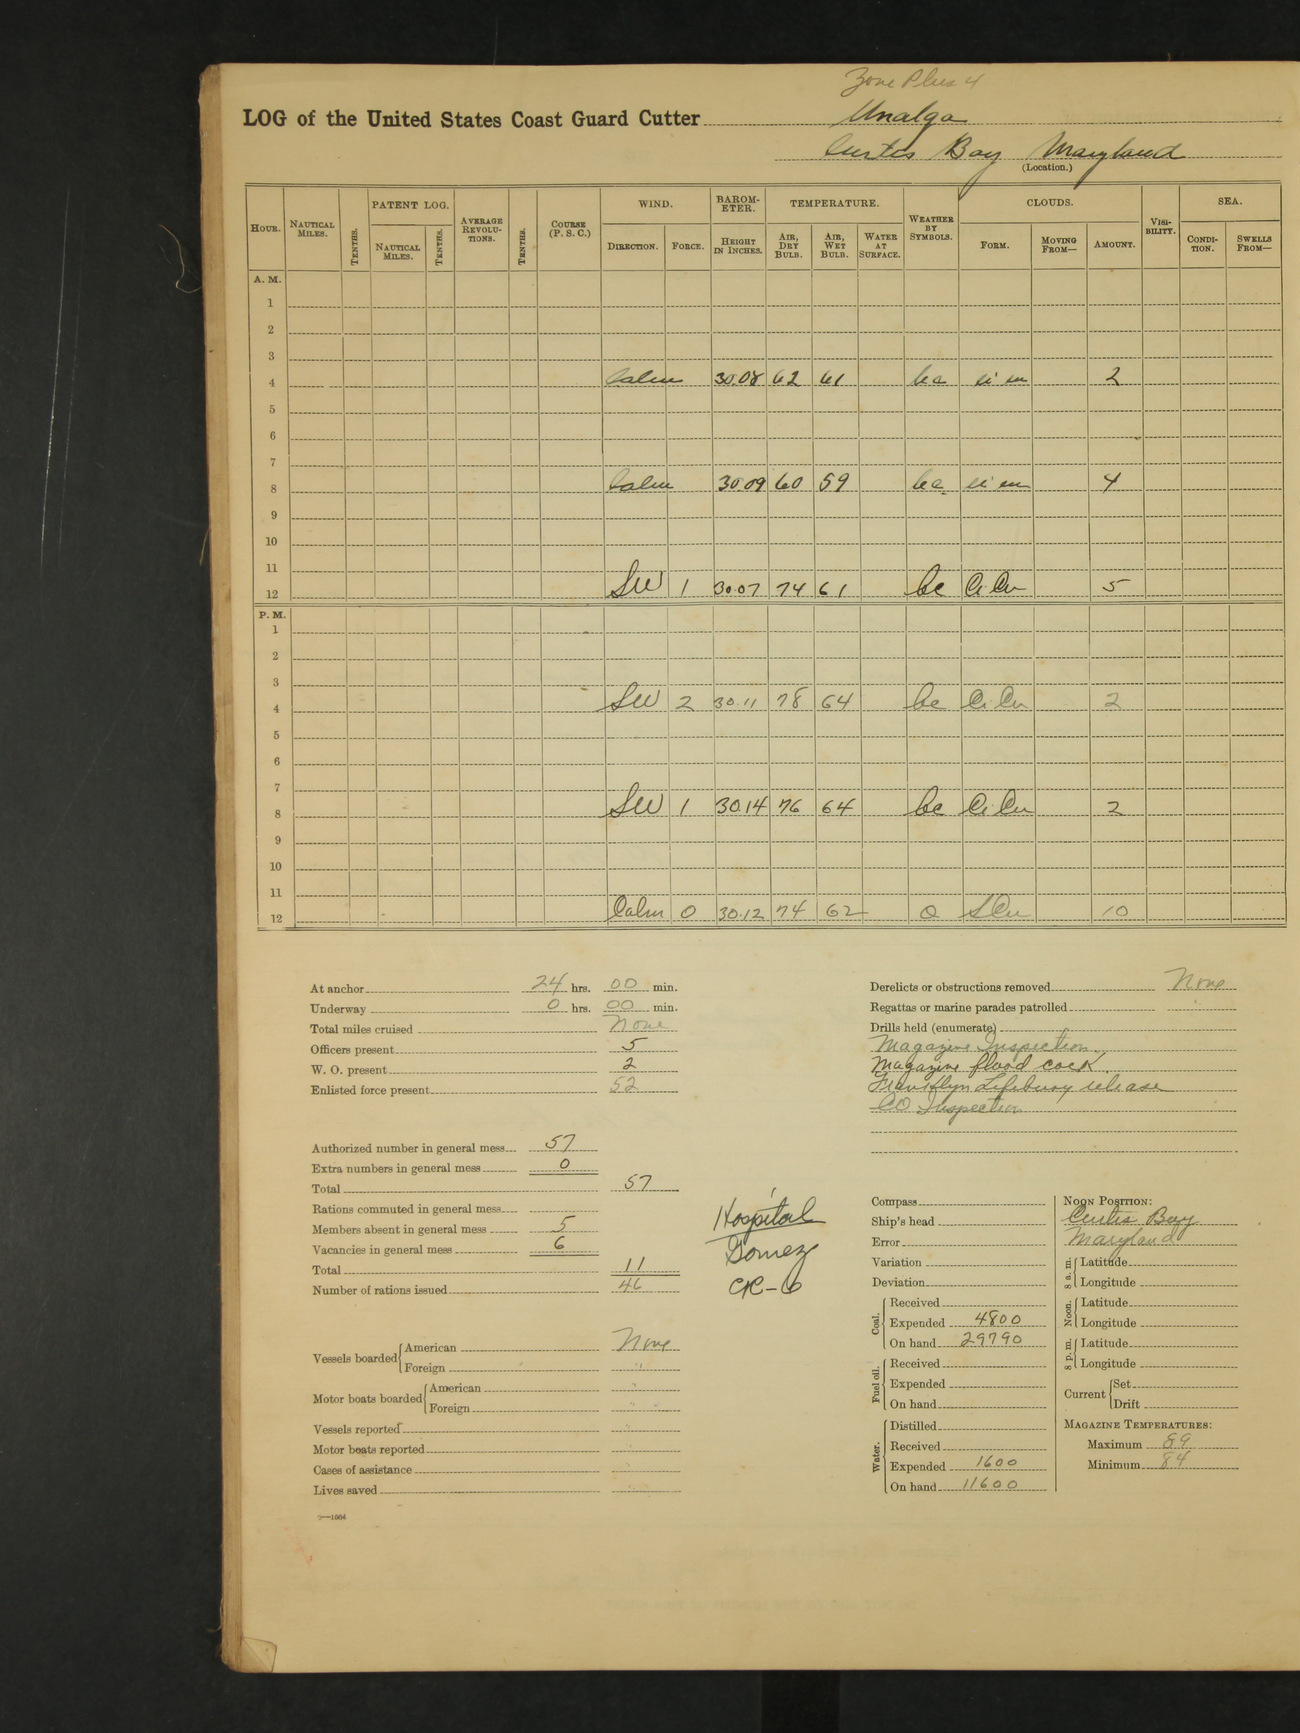 Zone Plus 4
LOG of the United States Coast Guard Cutter Unalga
Curtis Bay Maryland
(Location.)
HOUR. NAUTICAL MILES. TENTHS. PATENT LOG. NAUTICAL MILES. TENTHS. AVERAGE REVOLUTIONS. TENTHS. COURSE (P. S. C.) WIND. DIRECTION. FORCE. BAROMETER. HEIGHT IN INCHES. TEMPERATURE. AIR, DRY BULB. AIR, WET BULB. WATER AT SURFACE. WEATHER BY SYMBOLS. CLOUDS. FORM. MOVING FROM— AMOUNT. VISIBILITY. SEA. CONDITION. SWELLS FROM—
A. M.
1
2
3
4 Calm 30.08 62 61 bc ci cu 2
5
6
7
8 Calm 30.09 60 59 bc ci cu 4
9
10
11
12 SW 1 30.07 74 61 bc Ci Cu 5
P. M.
1
2
3
4 SW 2 30.11 78 64 bc Ci Cu 2
5
6
7
8 SW 1 30.14 76 64 bc Ci Cu 2
9
10
11
12 Calm 0 30.12 74 62 o SCu 10
At anchor 24 hrs. 00 min.
Underway 0 hrs. 00 min.
Total miles cruised None
Officers present 5
W. O. present 2
Enlisted force present 52
Authorized number in general mess 57
Extra numbers in general mess 0
Total 57
Rations commuted in general mess
Members absent in general mess 5
Vacancies in general mess 6
Total 11
Number of rations issued 46
Hospital
Gomez
CK-6
Vessels boarded American None
Foreign "
Motor boats boarded American "
Foreign " "
Vessels reported "
Motor boats reported "
Cases of assistance "
Lives saved "
2—1064
Derelicts or obstructions removed None
Regattas or marine parades patrolled "
Drills held (enumerate)
Magazine Inspection.
Magazine flood cock.
Franklyn Lifebuoy release
CO Inspection
Compass
Ship's head
Error
Variation
Deviation
Coal. Received
Expended 4800
On hand 29790
Fuel oil. Received
Expended
On hand
Water. Distilled
Received
Expended 1600
On hand 11600
NOON POSITION:
Curtis Bay
Maryland
8 a. m. Latitude
Longitude
Noon. Latitude
Longitude
8 p. m. Latitude
Longitude
Current Set
Drift
MAGAZINE TEMPERATURES:
Maximum 89
Minimum 84